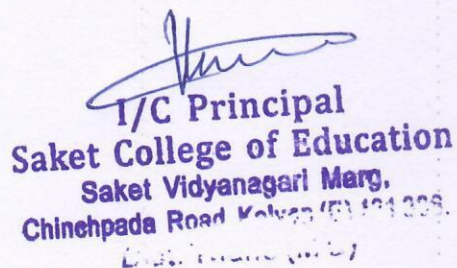 I/C Principal
Saket College of Education
Saket Vidyanagari Marg,
Chinchpada Road, Kalyan (E)